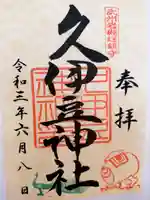 奉拝
久伊豆神社
令和三年六月八日